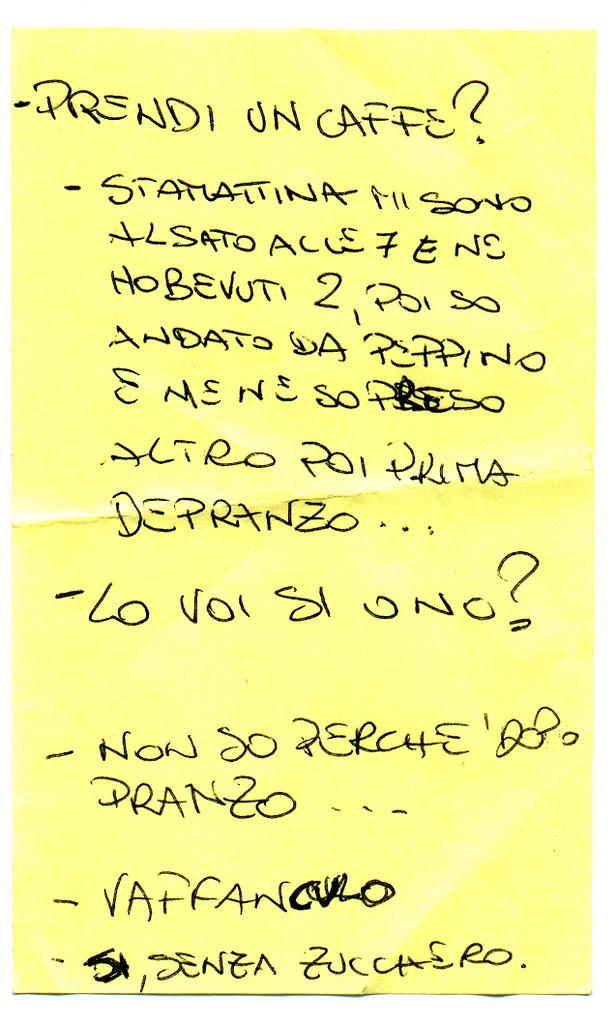 - PRENDI UN CAFFE?
- STAMATTINA MI SONO
ALSATO ALLE 7 E NE
HO BEVUTI 2, POI SO
ANDATO DA PEPPINO
E ME NE SO PRESO
ALTRO POI PRIMA
DEPRANZO ...
- LO VOI SI O NO?
- NON SO PERCHE' DOPO
PRANZO ...
- VAFFANCULO
- SI, SENZA ZUCCHERO.